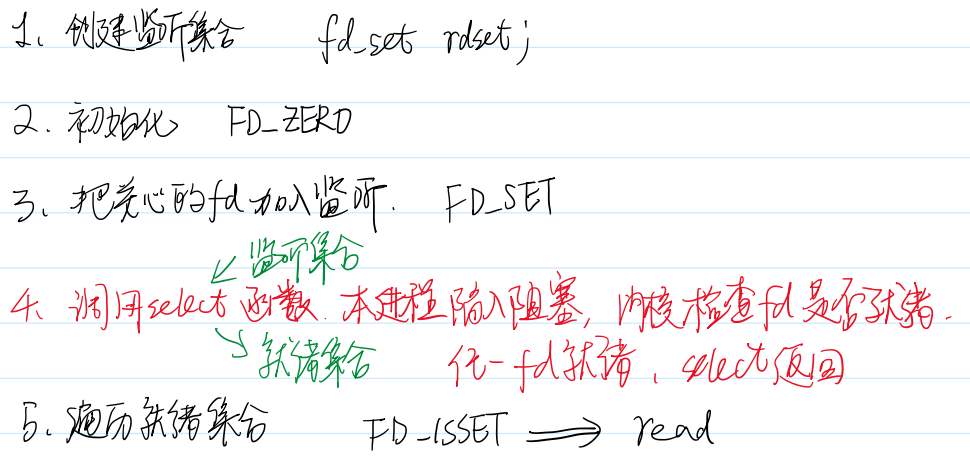 1、创建监听集合 fd_set rdset;
2. 初始化 FD_ZERO
3、把关心的fd加入监听. FD_SET
监听集合
4、调用select函数. 本进程陷入阻塞, 内核检查fd是否就绪.
就绪集合 任一fd就绪, select返回
5、遍历就绪集合 FD_ISSET ⟹ read